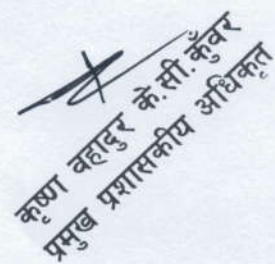 कृष्ण बहादुर के.सी.कुँवर
प्रमुख प्रशासकीय अधिकृत